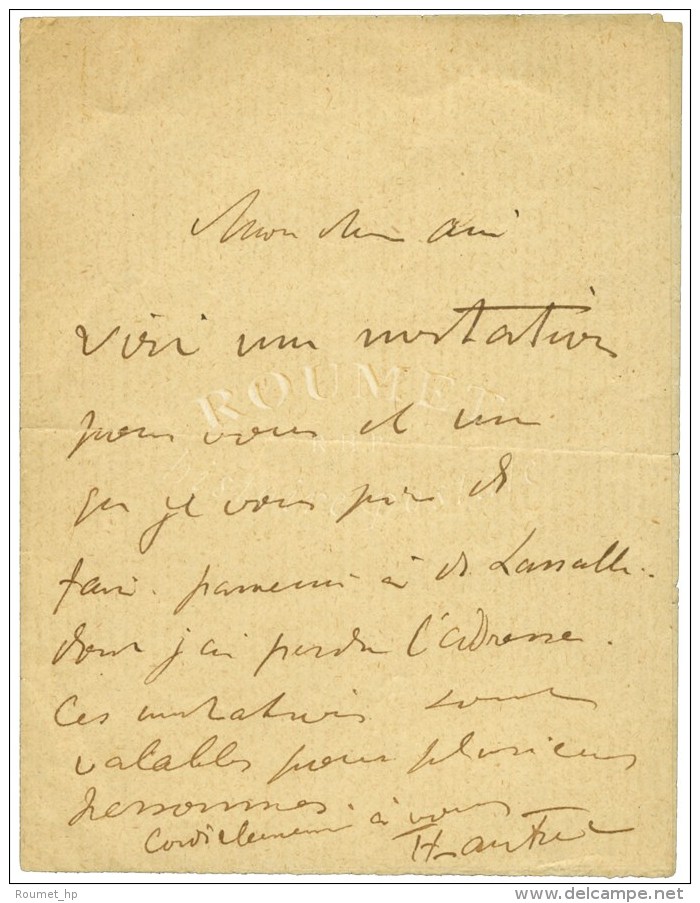 Mon cher ami
voici une invitation
pour vous et une
que je vous prie de
faire parvenir à de Lassalle.
dont j'ai perdu l'adresse.
Ces invitations sont
valables pour plusieurs
personnes.
Cordialement à vous
HLautrec
ROUMET
Roumet_hp
delcampe.net